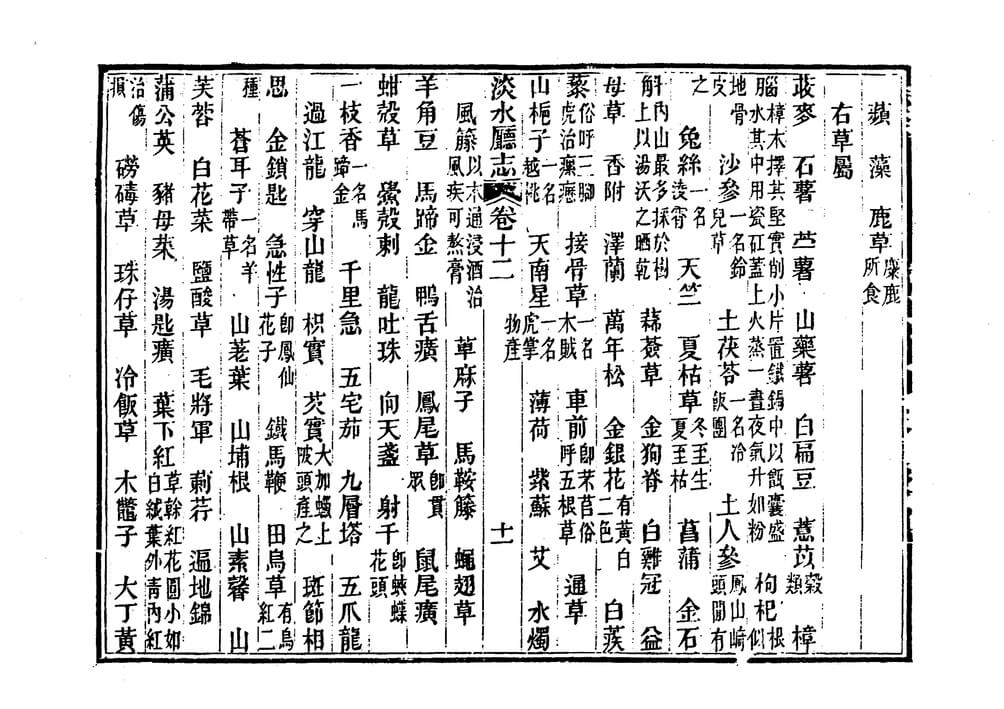 蘋　藻　鹿草麋鹿所食
右草屬
菽麥　石薯　苧薯　山藥薯　白扁豆　薏苡穀類　樟
腦樟木擇其堅實削小片置鐵鍋中以飯囊盛水其中用瓷缸蓋上火蒸一晝夜氣升如粉　枸杞根似
地骨皮　沙參一名鈴兒草　土茯苓一名冷飯團　土人參鳳山崎頭間有
之　兔絲一名　天竺　夏枯草冬至生夏至枯　菖蒲　金石
斛內山最多採於樹上以湯沃之晒乾　薟草　金狗脊　白雞冠　益
母草　香附　澤蘭　萬年松　金銀花有黃白二色　白蒺
藜俗呼三腳虎治癩　接骨草一名木賊　車前即芣苢俗呼五根草　通草
山梔子一名越桃　天南星一名虎掌　薄荷　紫蘇　艾　水燭
淡水廳志　卷十二　物產　十一
風籐以木通浸酒治風疾可熬膏　草麻子　馬鞍籐　蠅翅草
羊角豆　馬蹄金　鴨舌癀　鳳尾草即貫眾　鼠尾癀
蚶殼草　鱟殼刺　龍吐珠　向天盞　射干即蛺蝶花頭
一枝香一名馬蹄金　千里急　五宅茄　九層塔　五爪龍
過江龍　穿山龍　枳實　芡實大加蚋上陂頭產之　斑節相
思　金鎖匙　急性子即鳳仙花子　鐵馬鞭　田烏草有烏紅二
種　蒼耳子一名羊帶草　山荖葉　山埔根　山素馨　山
芙蓉　白花菜　鹽酸草　毛將軍　莿莧　遍地錦
蒲公英　豬母菜　湯匙癀　葉下紅草榦紅花圓小如白絨葉外青內紅
治傷損　磅磚草　珠仔草　冷飯草　木鼈子　大丁黃